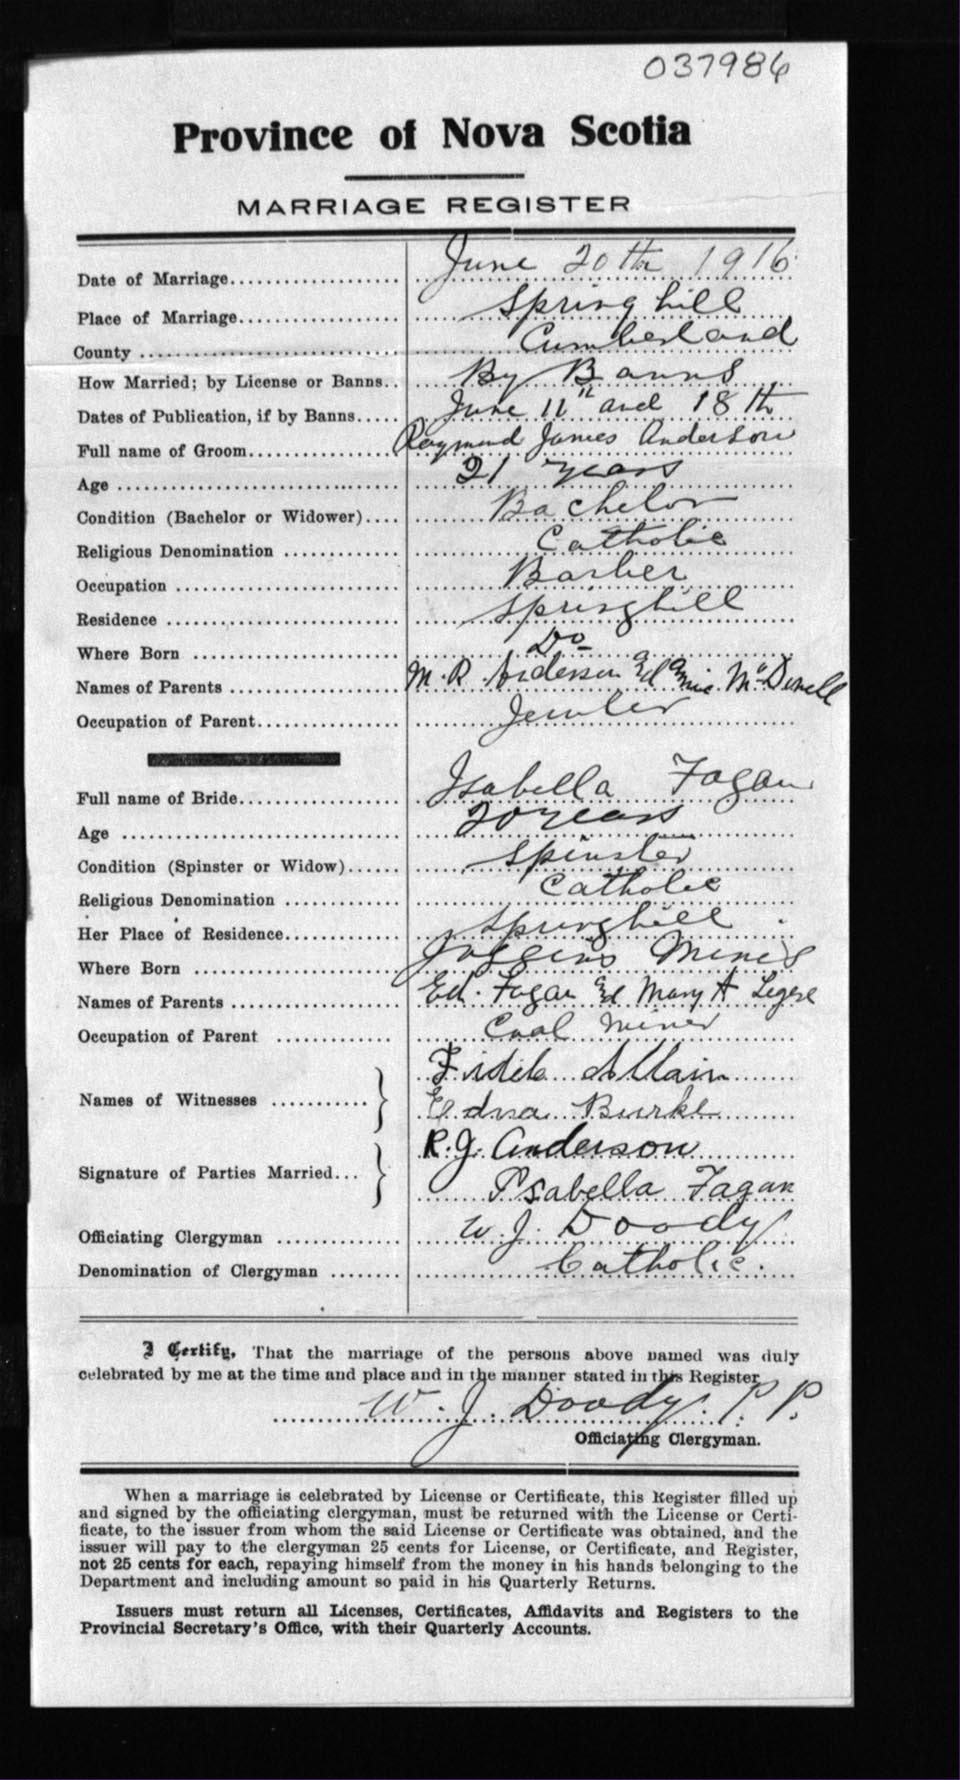 037986
Province of Nova Scotia
MARRIAGE REGISTER
Date of Marriage June 20th 1916
Place of Marriage Springhill
County Cumberland
How Married; by License or Banns By Banns
Dates of Publication, if by Banns June 11" and 18th
Full name of Groom Raymond James Anderson
Age 21 years
Condition (Bachelor or Widower) Bachelor
Religious Denomination Catholic
Occupation Barber
Residence Springhill
Where Born Do
Names of Parents M. R. Anderson and
Occupation of Parent Jewler
Full name of Bride Isabella Fagan
Age 20 years
Condition (Spinster or Widow) Spinster
Religious Denomination Catholic
Her Place of Residence Springhill
Where Born Joggins Mines
Names of Parents Ed. Fagan and Mary A Legere
Occupation of Parent Coal miner
Names of Witnesses Fidele Allain
Edna Burke
Signature of Parties Married R. J. Anderson
Isabella Fagan
Officiating Clergyman W. J. Doody
Denomination of Clergyman Catholic.
I Certify, That the marriage of the persons above named was duly
celebrated by me at the time and place and in the manner stated in this Register
W. J. Doody. P. P.
Officiating Clergyman.
When a marriage is celebrated by License or Certificate, this Register filled up
and signed by the officiating clergyman, must be returned with the License or Certi-
ficate, to the issuer from whom the said License or Certificate was obtained, and the
issuer will pay to the clergyman 25 cents for License, or Certificate, and Register,
not 25 cents for each, repaying himself from the money in his hands belonging to the
Department and including amount so paid in his Quarterly Returns.
Issuers must return all Licenses, Certificates, Affidavits and Registers to the
Provincial Secretary's Office, with their Quarterly Accounts.